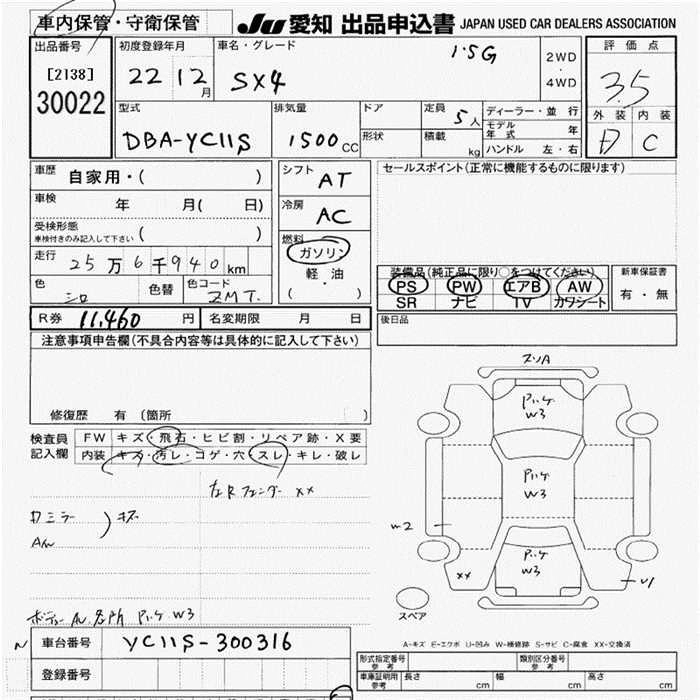 車内保管・守衛保管
JU 愛知 出品申込書 JAPAN USED CAR DEALERS ASSOCIATION
出品番号 [2138] 30022
初度登録年月 22 12月
車名・グレード SX4 1.5G
2WD ・ 4WD
評価点 3.5
外装 内装 C
型式 DBA-YC11S
排気量 1500 cc
ドア
形状
定員 5人
積載 kg
ディーラー・並行
モデル年式 年
ハンドル 左・右
車歴 自家用・( )
車検 年 月( 日)
受検形態
車検付きのみ記入して下さい ( )
走行 25万6千940km
色 シロ 色替 色コード ZMT.
シフト AT
冷房 AC
燃料 ガソリン
軽・油
( )
セールスポイント(正常に機能するものに限ります)
装備品(純正品に限り○をつけてください)
PS PW エアB AW
SR ナビ TV カワシート
新車保証書
有・無
R券 11,460 円 名変期限 月 日
後日品
注意事項申告欄(不具合内容等は具体的に記入して下さい)
修復歴 有(箇所 )
検査員記入欄
FW キズ・飛石・ヒビ割・リペア跡・X要
内装 キズ・汚レ・コゲ・穴・スレ・キレ・破レ
左Rフェンダー XX
ミラー ) キズ
ボディー 各所 W3
W3
W3
W3
XX
スペア
A-キズ E-エクボ U-凹み W-補修跡 S-サビ C-腐食 XX-交換済
車台番号 YC11S-300316
登録番号
形式指定番号 参考
類別区分番号 参考
車庫証明用 参考 長さ cm 幅 cm 高さ cm